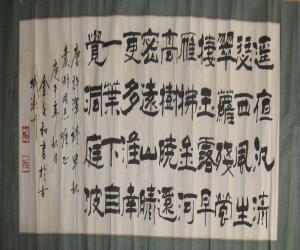 遥夜汎清
瑟西風生
翠蘿殘螢
棲玉露早
雁拂金河
高樹曉還
密遠山晴
更多淮南
一葉下自
覺洞庭波
唐許渾詩早秋
同志雅正
庚午
和書於古